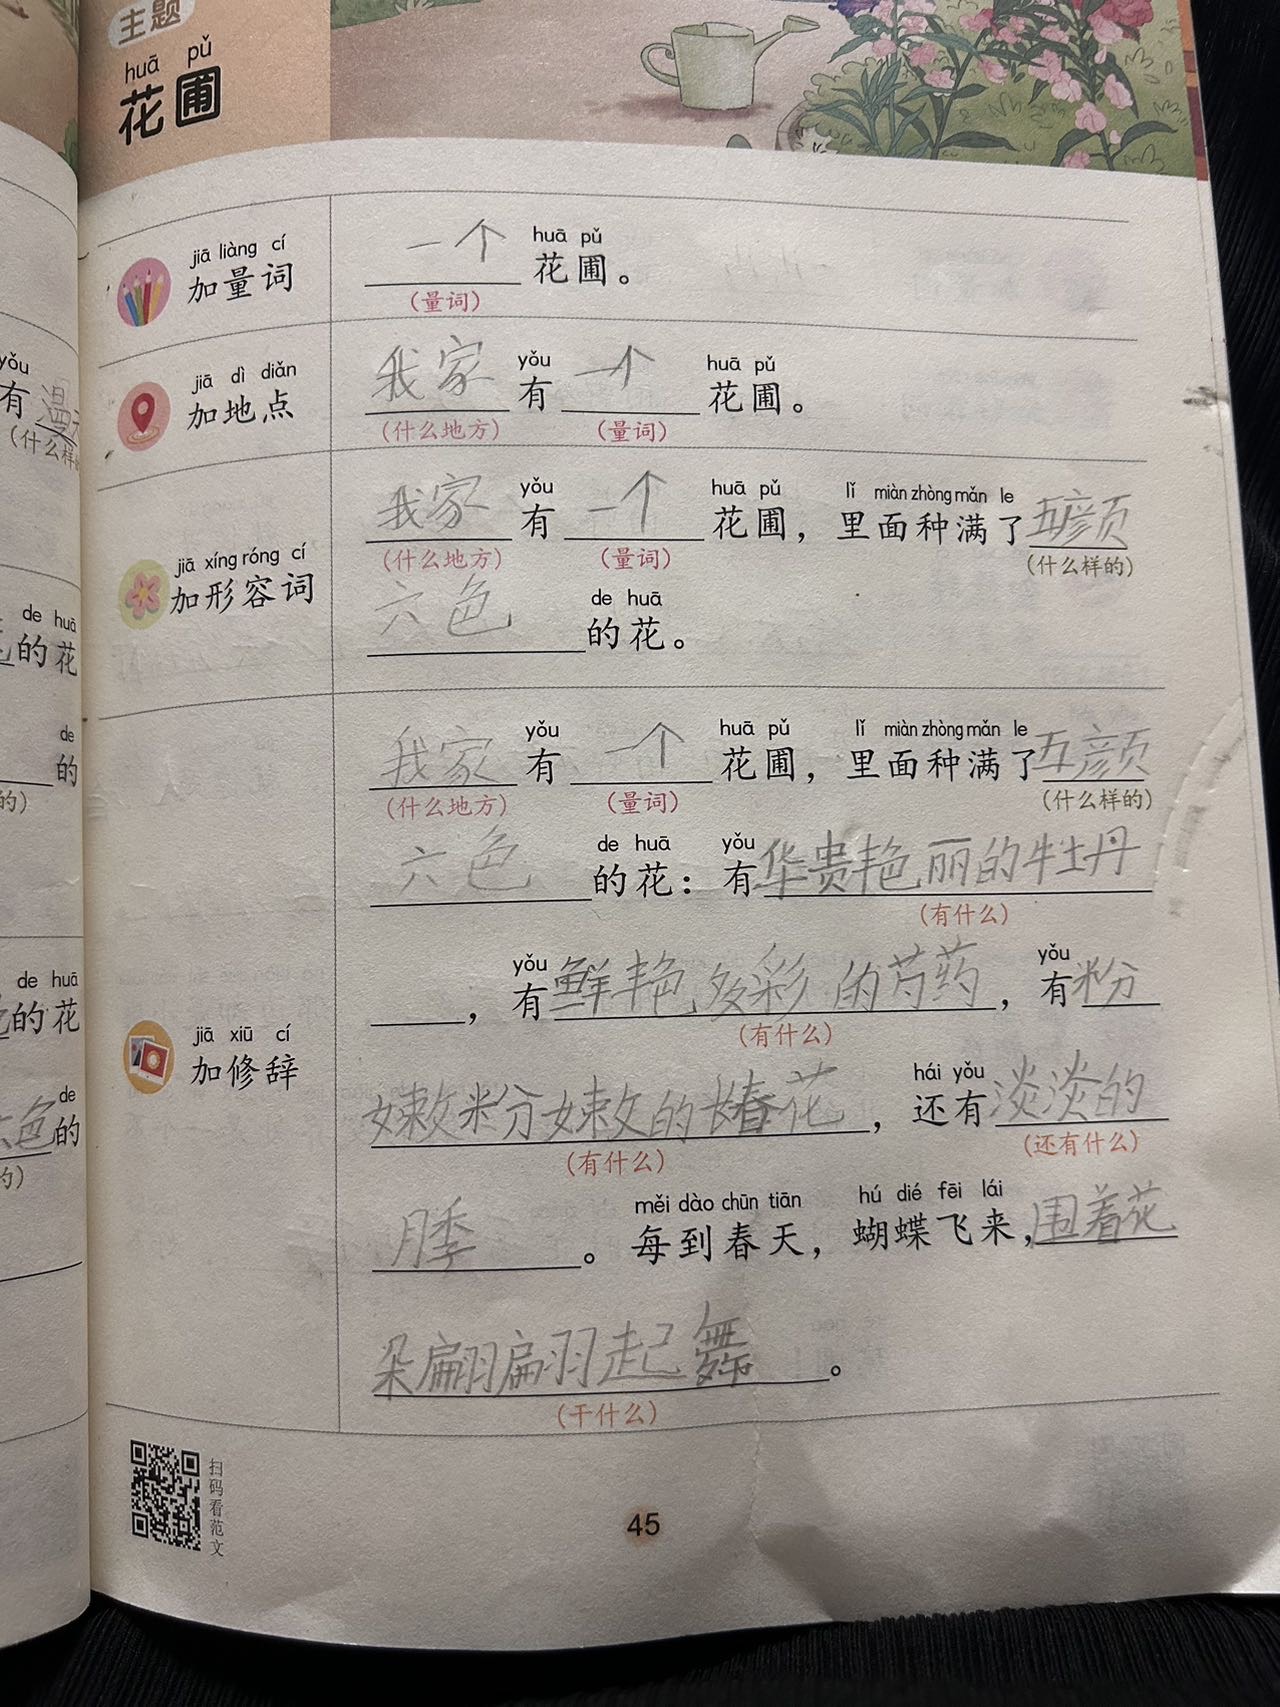 主题
huā pǔ
花圃
jiā liàng cí
加量词
huā pǔ
一个花圃。
(量词)
jiā dì diǎn
加地点
yǒu huā pǔ
我家有一个花圃。
(什么地方) (量词)
jiā xíng róng cí
加形容词
yǒu huā pǔ lǐ miàn zhòng mǎn le
我家有一个花圃，里面种满了五颜
(什么地方) (量词) (什么样的)
de huā
六色的花。
jiā xiū cí
加修辞
yǒu huā pǔ lǐ miàn zhòng mǎn le
我家有一个花圃，里面种满了五颜
(什么地方) (量词) (什么样的)
de huā yǒu
六色的花：有华贵艳丽的牡丹
(有什么)
yǒu yǒu
，有鲜艳多彩的芍药，有粉
(有什么)
hái yǒu
嫩粉嫩的长春花，还有淡淡的
(有什么) (还有什么)
měi dào chūn tiān hú dié fēi lái
月季。每到春天，蝴蝶飞来，围着花
朵翩翩起舞。
(干什么)
扫码看范文
45
yǒu
有漫天
(什么样的
de huā
的花
de
的
的)
de huā
的花
de
六色的
的)